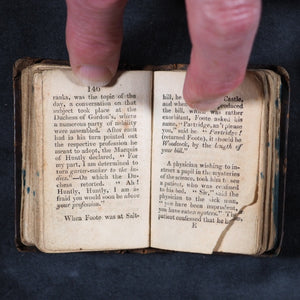 140
ranks, was the topic of the
day, a conversation on that
subject took place at the
Duchess of Gordon's, where
a numerous party of nobility
were assembled. After each
had in his turn pointed out
the respective profession he
meant to adopt, the Marquis
of Huntly declared, "For
my part, I am determined to
turn garter-maker to the la-
dies."—On which the Du-
chess retorted, "Ah!
Huntly, Huntly, I am a-
fraid you would soon be above
your profession."
When Foote was at Salt-
hill, he Castle,
and when produced
the bill, which was rather
exorbitant, Foote asked his
name, "Partridge, an't please
you," said he. "Partridge!
(returned Foote), it should be
Woodcock, by the length of
your bill."
A physician wishing to in-
struct a pupil in the mysteries
of the science, took him to see
a patient, who was confined
to his bed. "Sir," said the
physician to the sick man,
"you have been imprudent,
you have eaten oysters." The
patient confessed that he
E